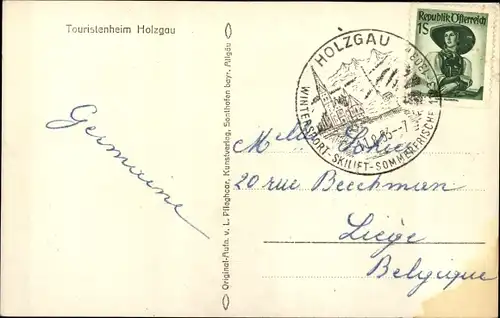 Touristenheim Holzgau
Germaine
Original-Aufn. v. L. Fileghcar, Kunstverlag, Sonthofen bayr. Allgäu
HOLZGAU
WINTERSPORT-SKILIFT-SOMMERFRISCHE
Republik Österreich
1S
Melle
20 rue Beeckman
Liège
Belgique